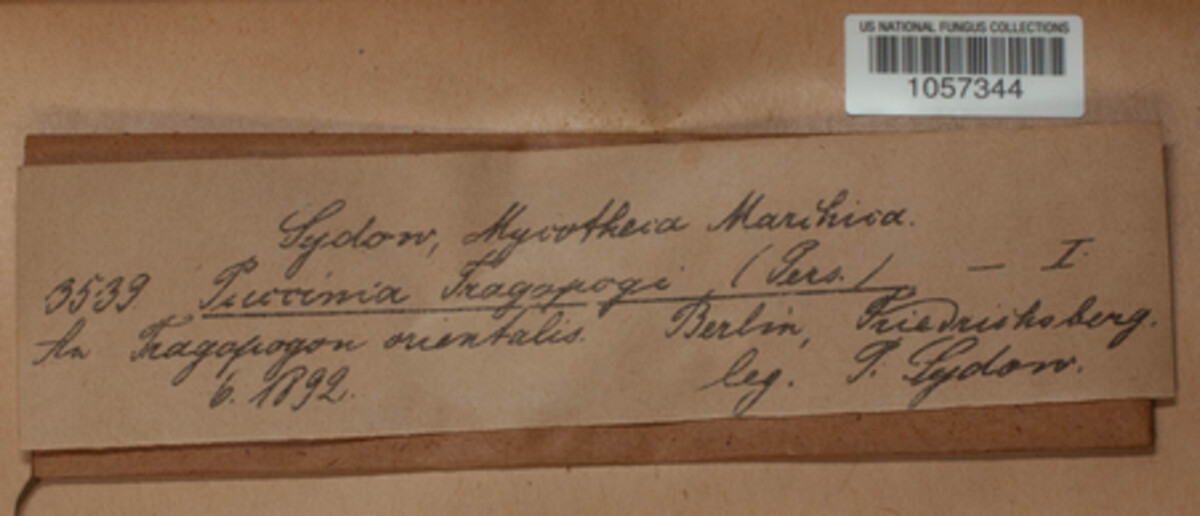 US NATIONAL FUNGUS COLLECTIONS
1057344
Sydow, Mycotheca Marchica.
3539 Puccinia Tragopogi (Pers.) — I.
An Tragopogon orientalis. Berlin, Friedrichsberg.
6. 1892. leg. P. Sydow.